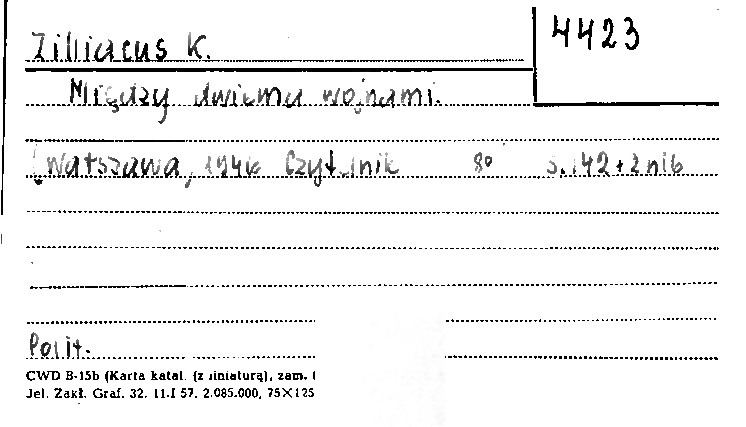 Zilliacus K.
4423
Między dwiema wojnami.
Warszawa, 1946 Czytelnik 8° s. 142+2nlb
Polit.
CWD B-15b (Karta katal. (z liniaturą), zam.
Jel. Zakł. Graf. 32. 11.I 57. 2.085.000, 75×125